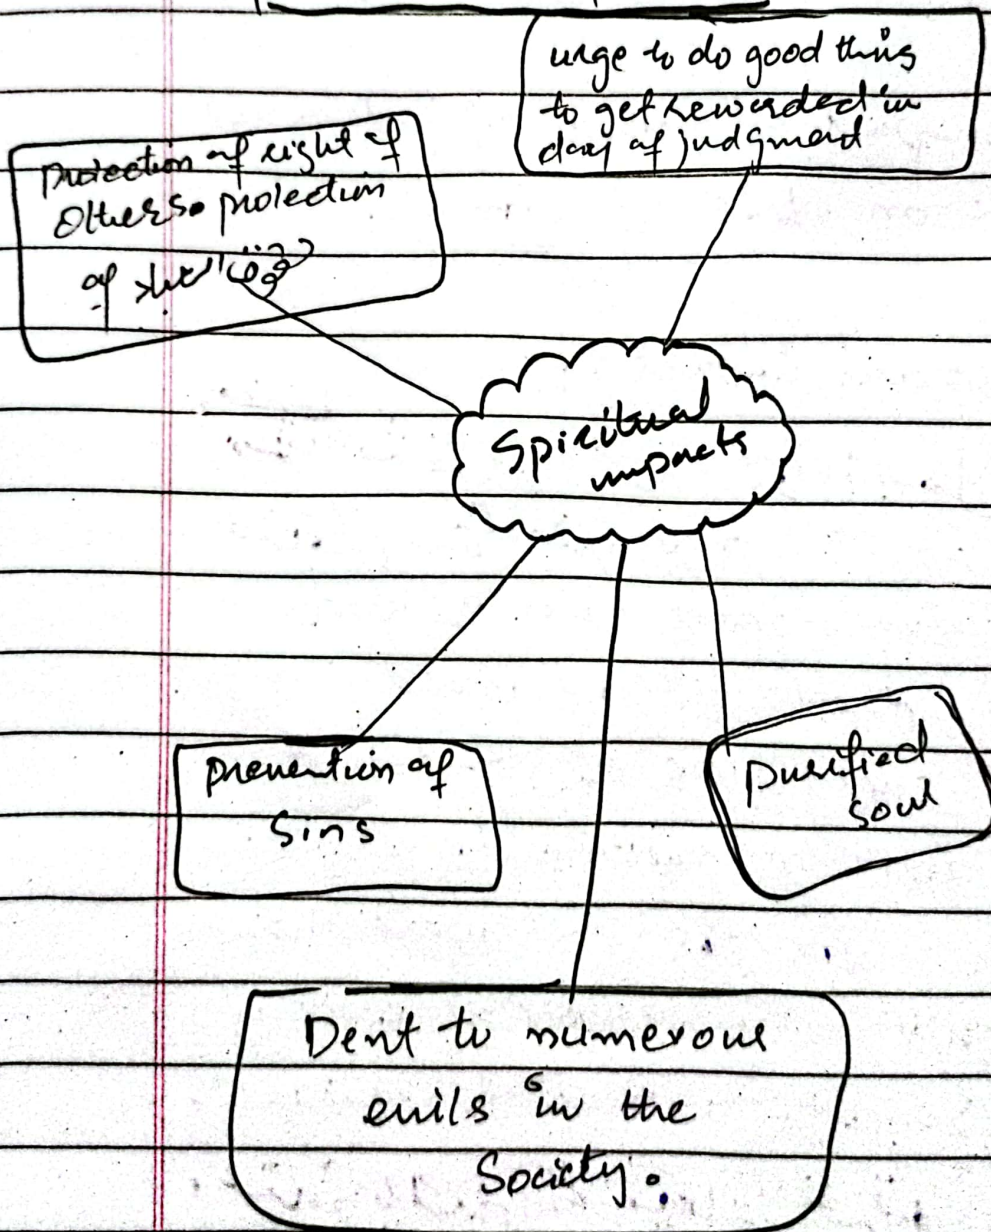 urge to do good thing
to get rewarded in
day of judgment
protection of right of
others. protection
of the حقوق
Spiritual
impacts
prevention of
sins
purified
soul
Dent to numerous
evils in the
Society.